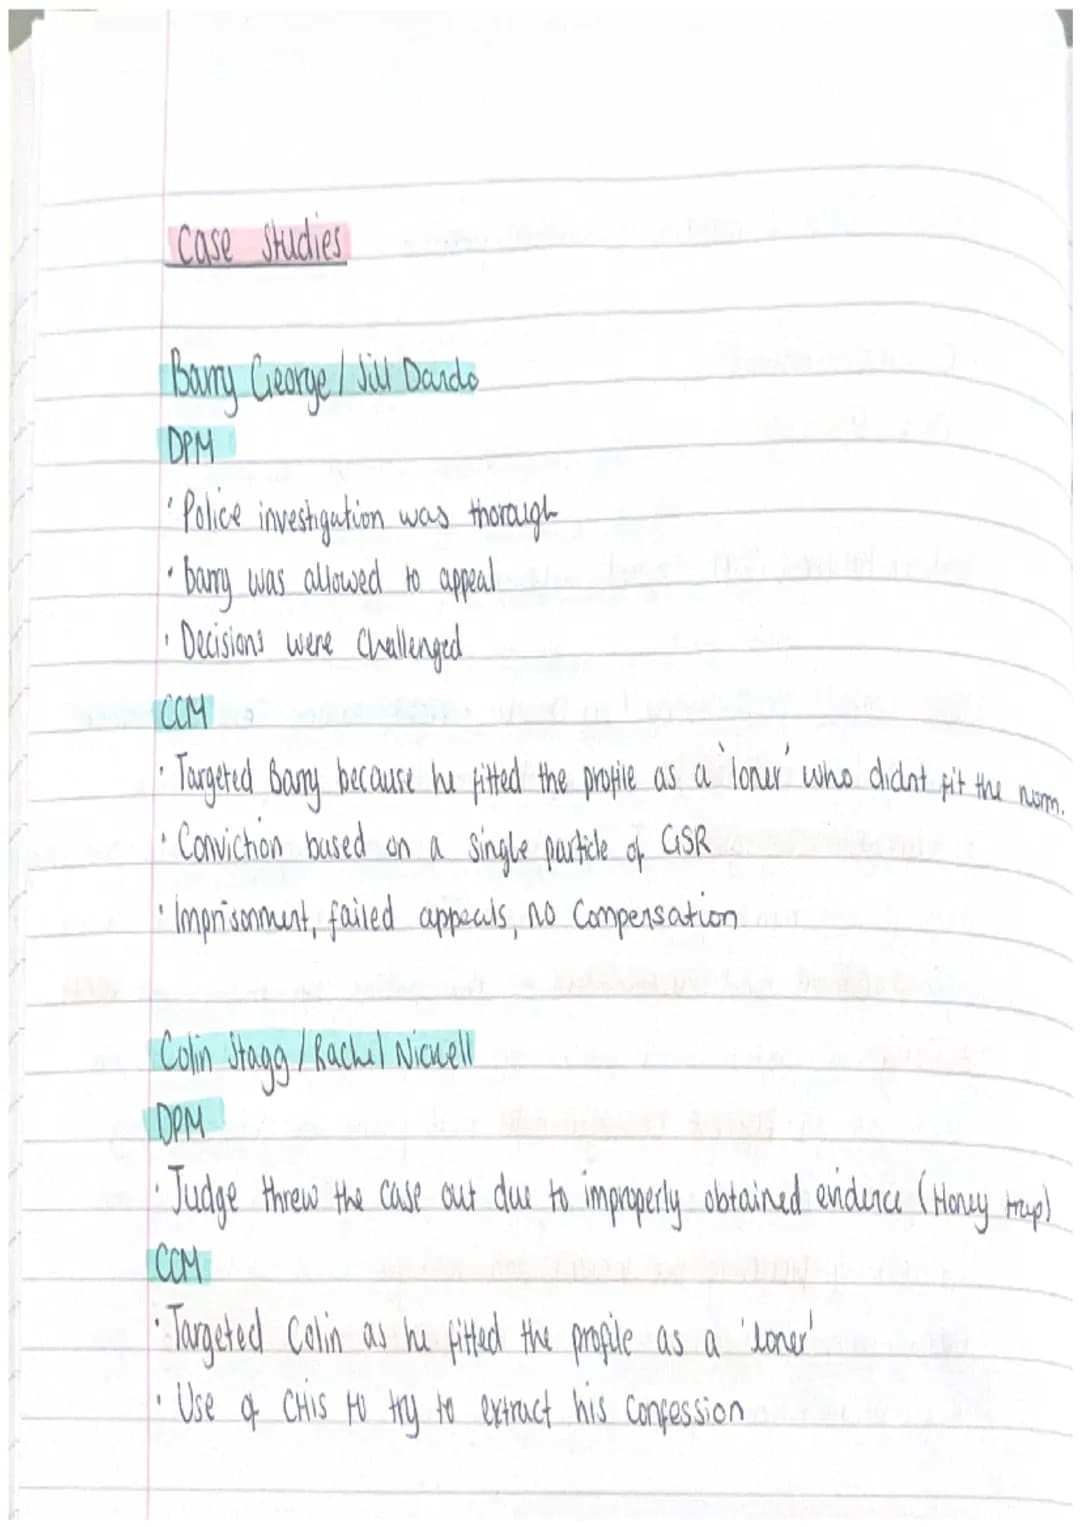 Case Studies
Barry George / Jill Dando
DPM
· Police investigation was thorough
· barry was allowed to appeal
· Decisions were Challenged
CCM
· Targeted Barry because he fitted the profile as a 'loner' who didnt fit the norm.
· Conviction based on a single particle of GSR
· Imprisonment, failed appeals, no Compensation
Colin Stagg / Rachel Nickell
DPM
· Judge threw the case out due to improperly obtained evidence (Honey trap)
CCM
· Targeted Colin as he fitted the profile as a 'loner'
· Use of CHIS to try to extract his Confession